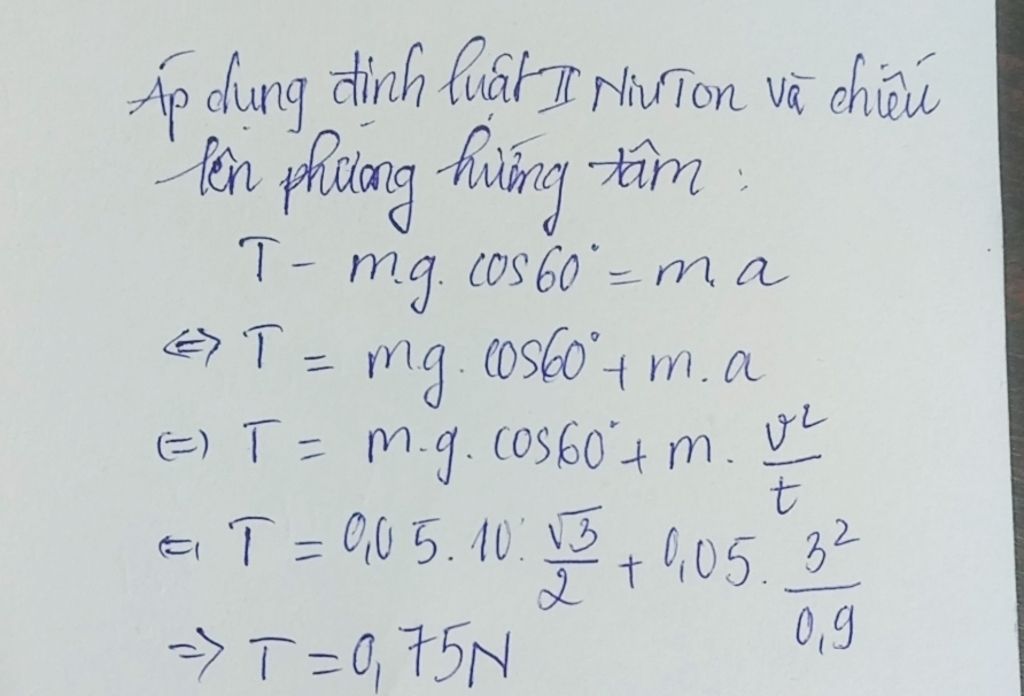 Áp dụng định luật II NiuTon và chiếu
lên phương hướng tâm :
T - m.g. cos60° = m. a
<=> T = m.g. cos60° + m. a
(=) T = m.g. cos60° + m. v²/t
<=> T = 0,05. 10. √3/2 + 0,05. 3²/0,9
=> T = 0,75N